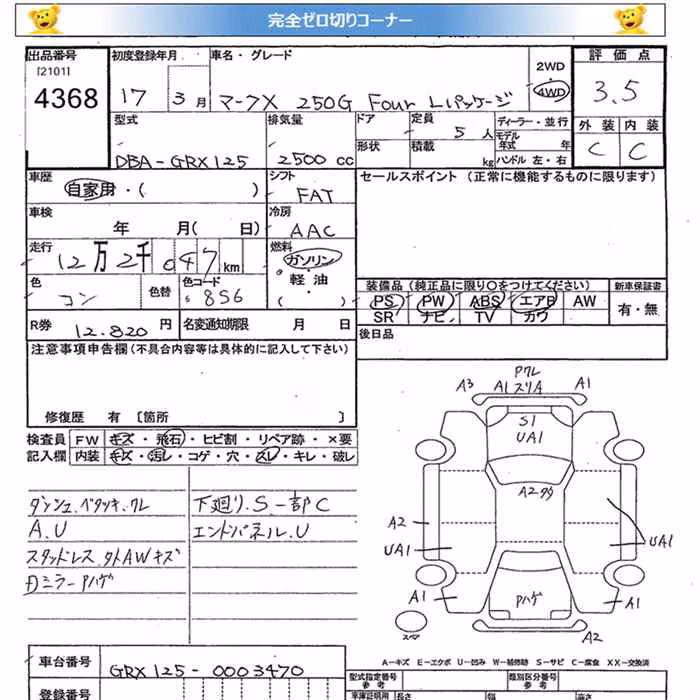 完全ゼロ切りコーナー
出品番号 初度登録年月 車名・グレード 2WD 評価点
[2101] 4WD
4368 17 3月 マークX 250G Four Lパッケージ 3.5
型式 排気量 ドア 定員 5人 ディーラー・並行 外装 内装
形状 積載 kg モデル年式 年 C C
DBA-GRX125 2500cc ハンドル 左・右
車歴 シフト セールスポイント (正常に機能するものに限ります)
自家用・( ) FAT
車検 冷房
年 月( 日) AAC
走行 燃料
12万2千047km ガソリン・軽油
色 色替 色コード ( )
コン 856
装備品(純正品に限り○をつけてください) 新車保証書
PS PW ABS エアB AW 有・無
SR ナビ TV カワ
R券 12.820円 名変通知期限 月 日 後日品
注意事項申告欄(不具合内容等は具体的に記入して下さい)
修復歴 有 [箇所 ]
検査員 FW キズ・飛石・ヒビ割・リペア跡・×要
記入欄 内装 キズ・汚レ・コゲ・穴・スレ・キレ・破レ
ダッシュ、ベタツキ、ワレ
A.U
スタッドレス、タトAWキズ
Dミラー Pハゲ
下廻り.S.一部C
エンドパネル.U
Pワレ
A3 A1スリA A1
S1
UA1
A2ワタ
A2
UA1 UA1
A1 Pハゲ A1
スペア A2
A-キズ E-エクボ U-凹み W-補修跡 S-サビ C-腐食 XX-交換済
車台番号 GRX125-0003470
登録番号
型式指定番号 参考 類別区分番号 参考
車庫証明用 長さ 幅 高さ